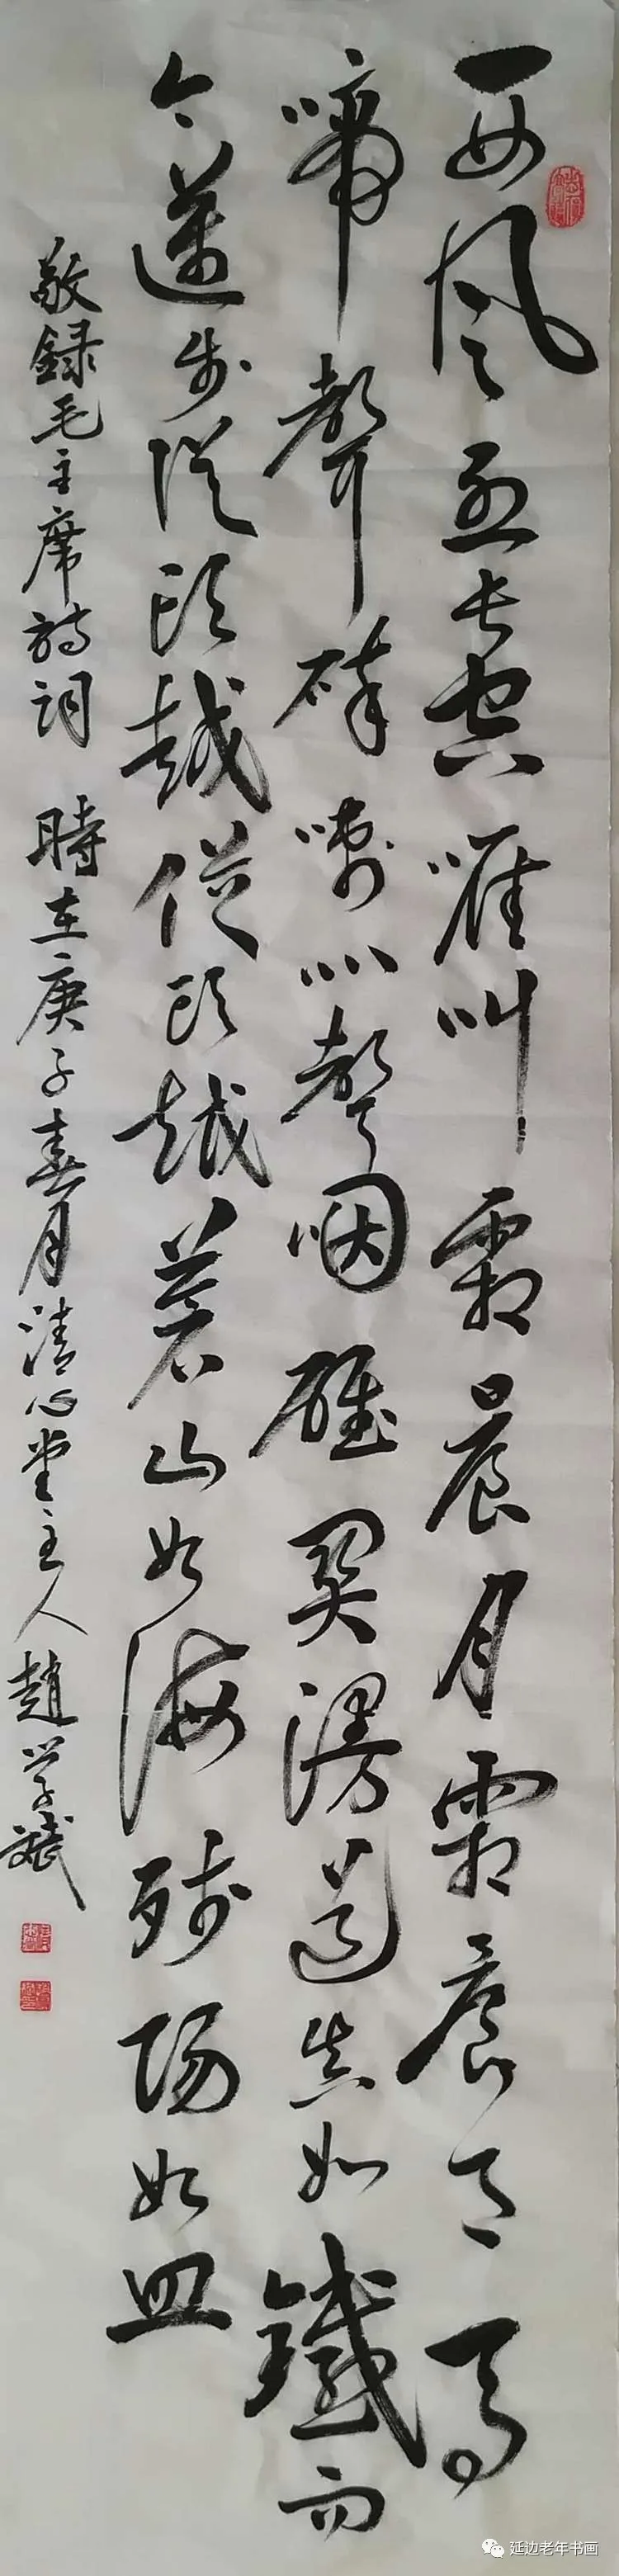 西風烈長空雁叫霜晨月霜晨月馬
蹄聲碎喇叭聲咽雄關漫道真如鐵而
今邁步從頭越從頭越蒼山如海殘陽如血
敬録毛主席詩詞 時在庚子春月清心堂主人趙學斌
延边老年书画